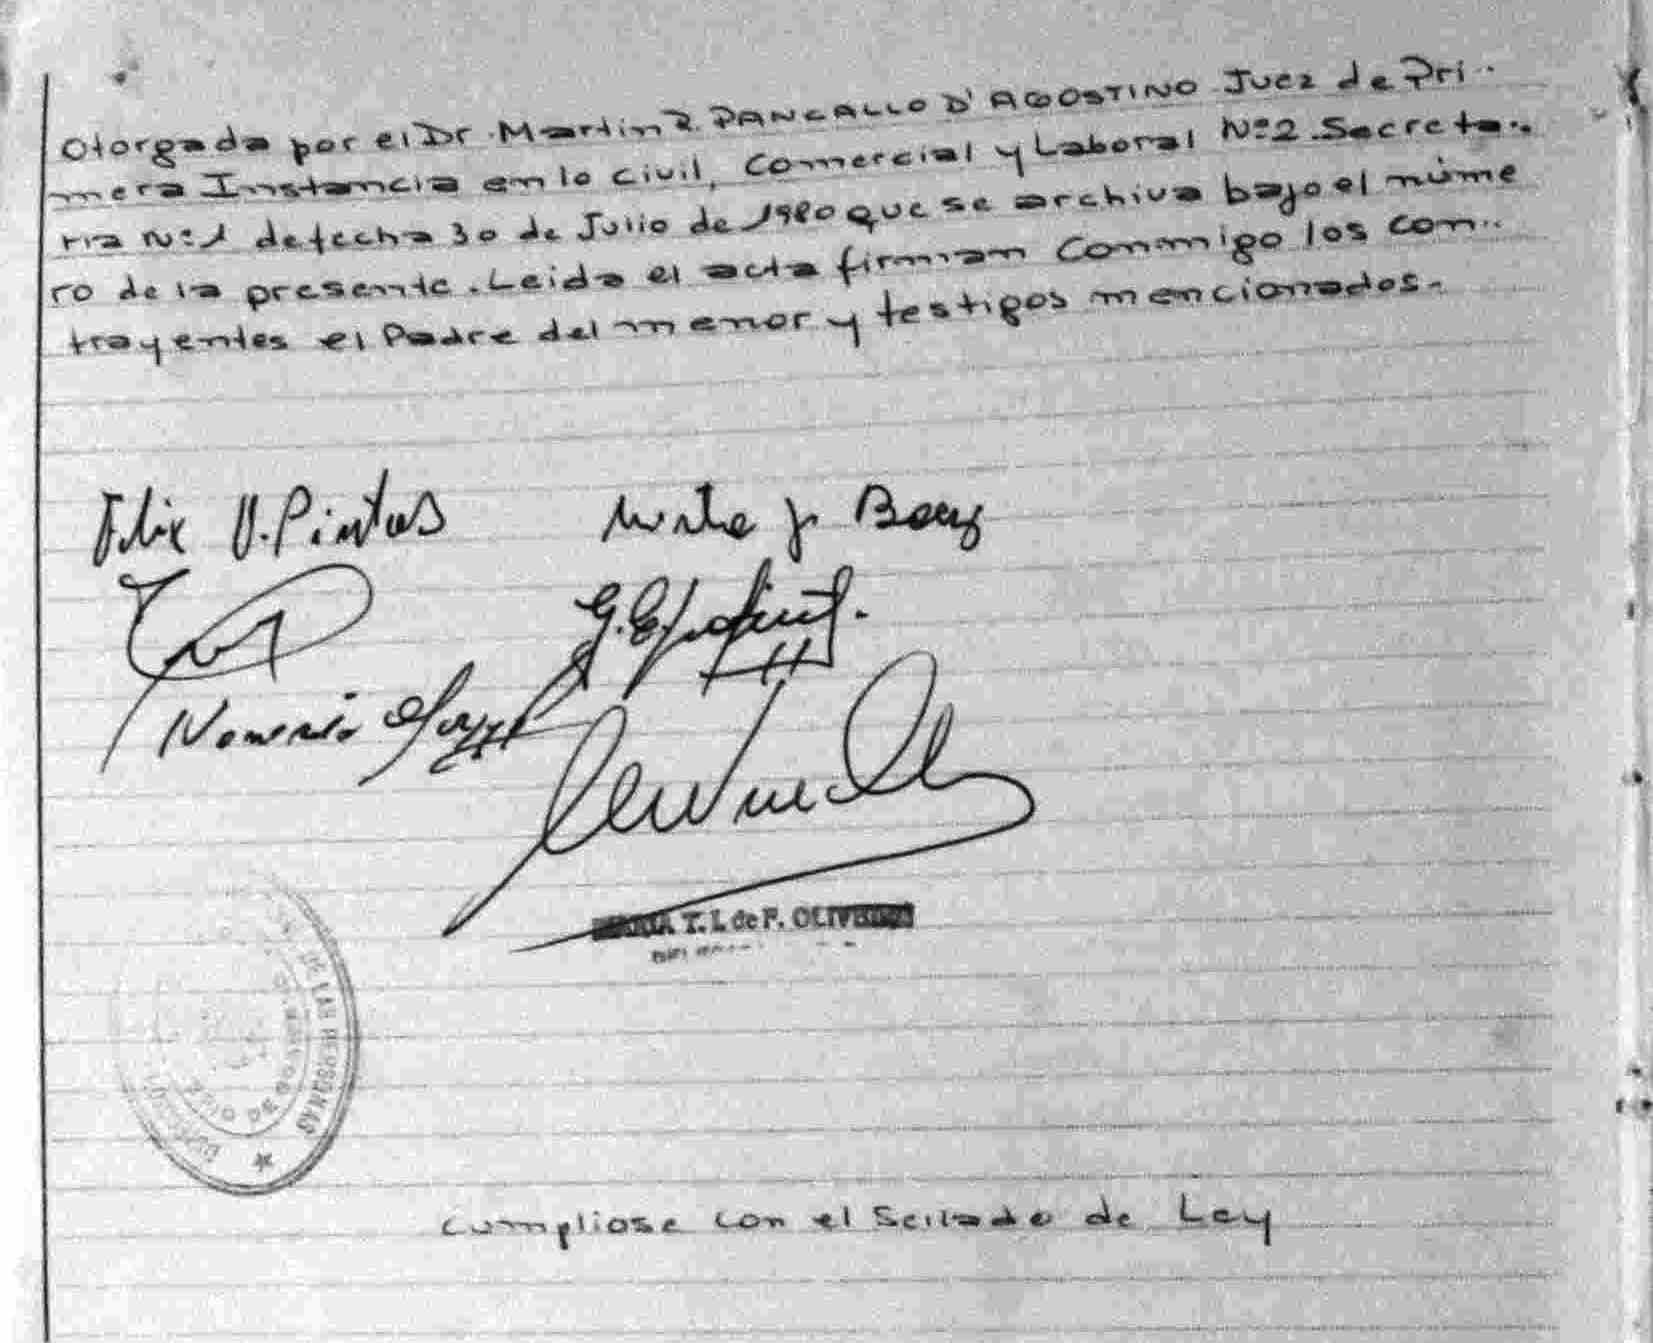 Otorgada por el Dr. Martin R. PANCALLO D'AGOSTINO Juez de Pri..
mera Instancia en lo civil, Comercial y Laboral Nº2 Secreta..
ria Nº1 de fecha 30 de Julio de 1980 que se archiva bajo el núme
ro de la presente. Leida el acta firman Conmigo los con..
trayentes el Padre del menor y testigos mencionados.
Felix V. Pintos
T. I. de F.
DE LAS PERSONAS
Cumpliose con el Sellado de Ley